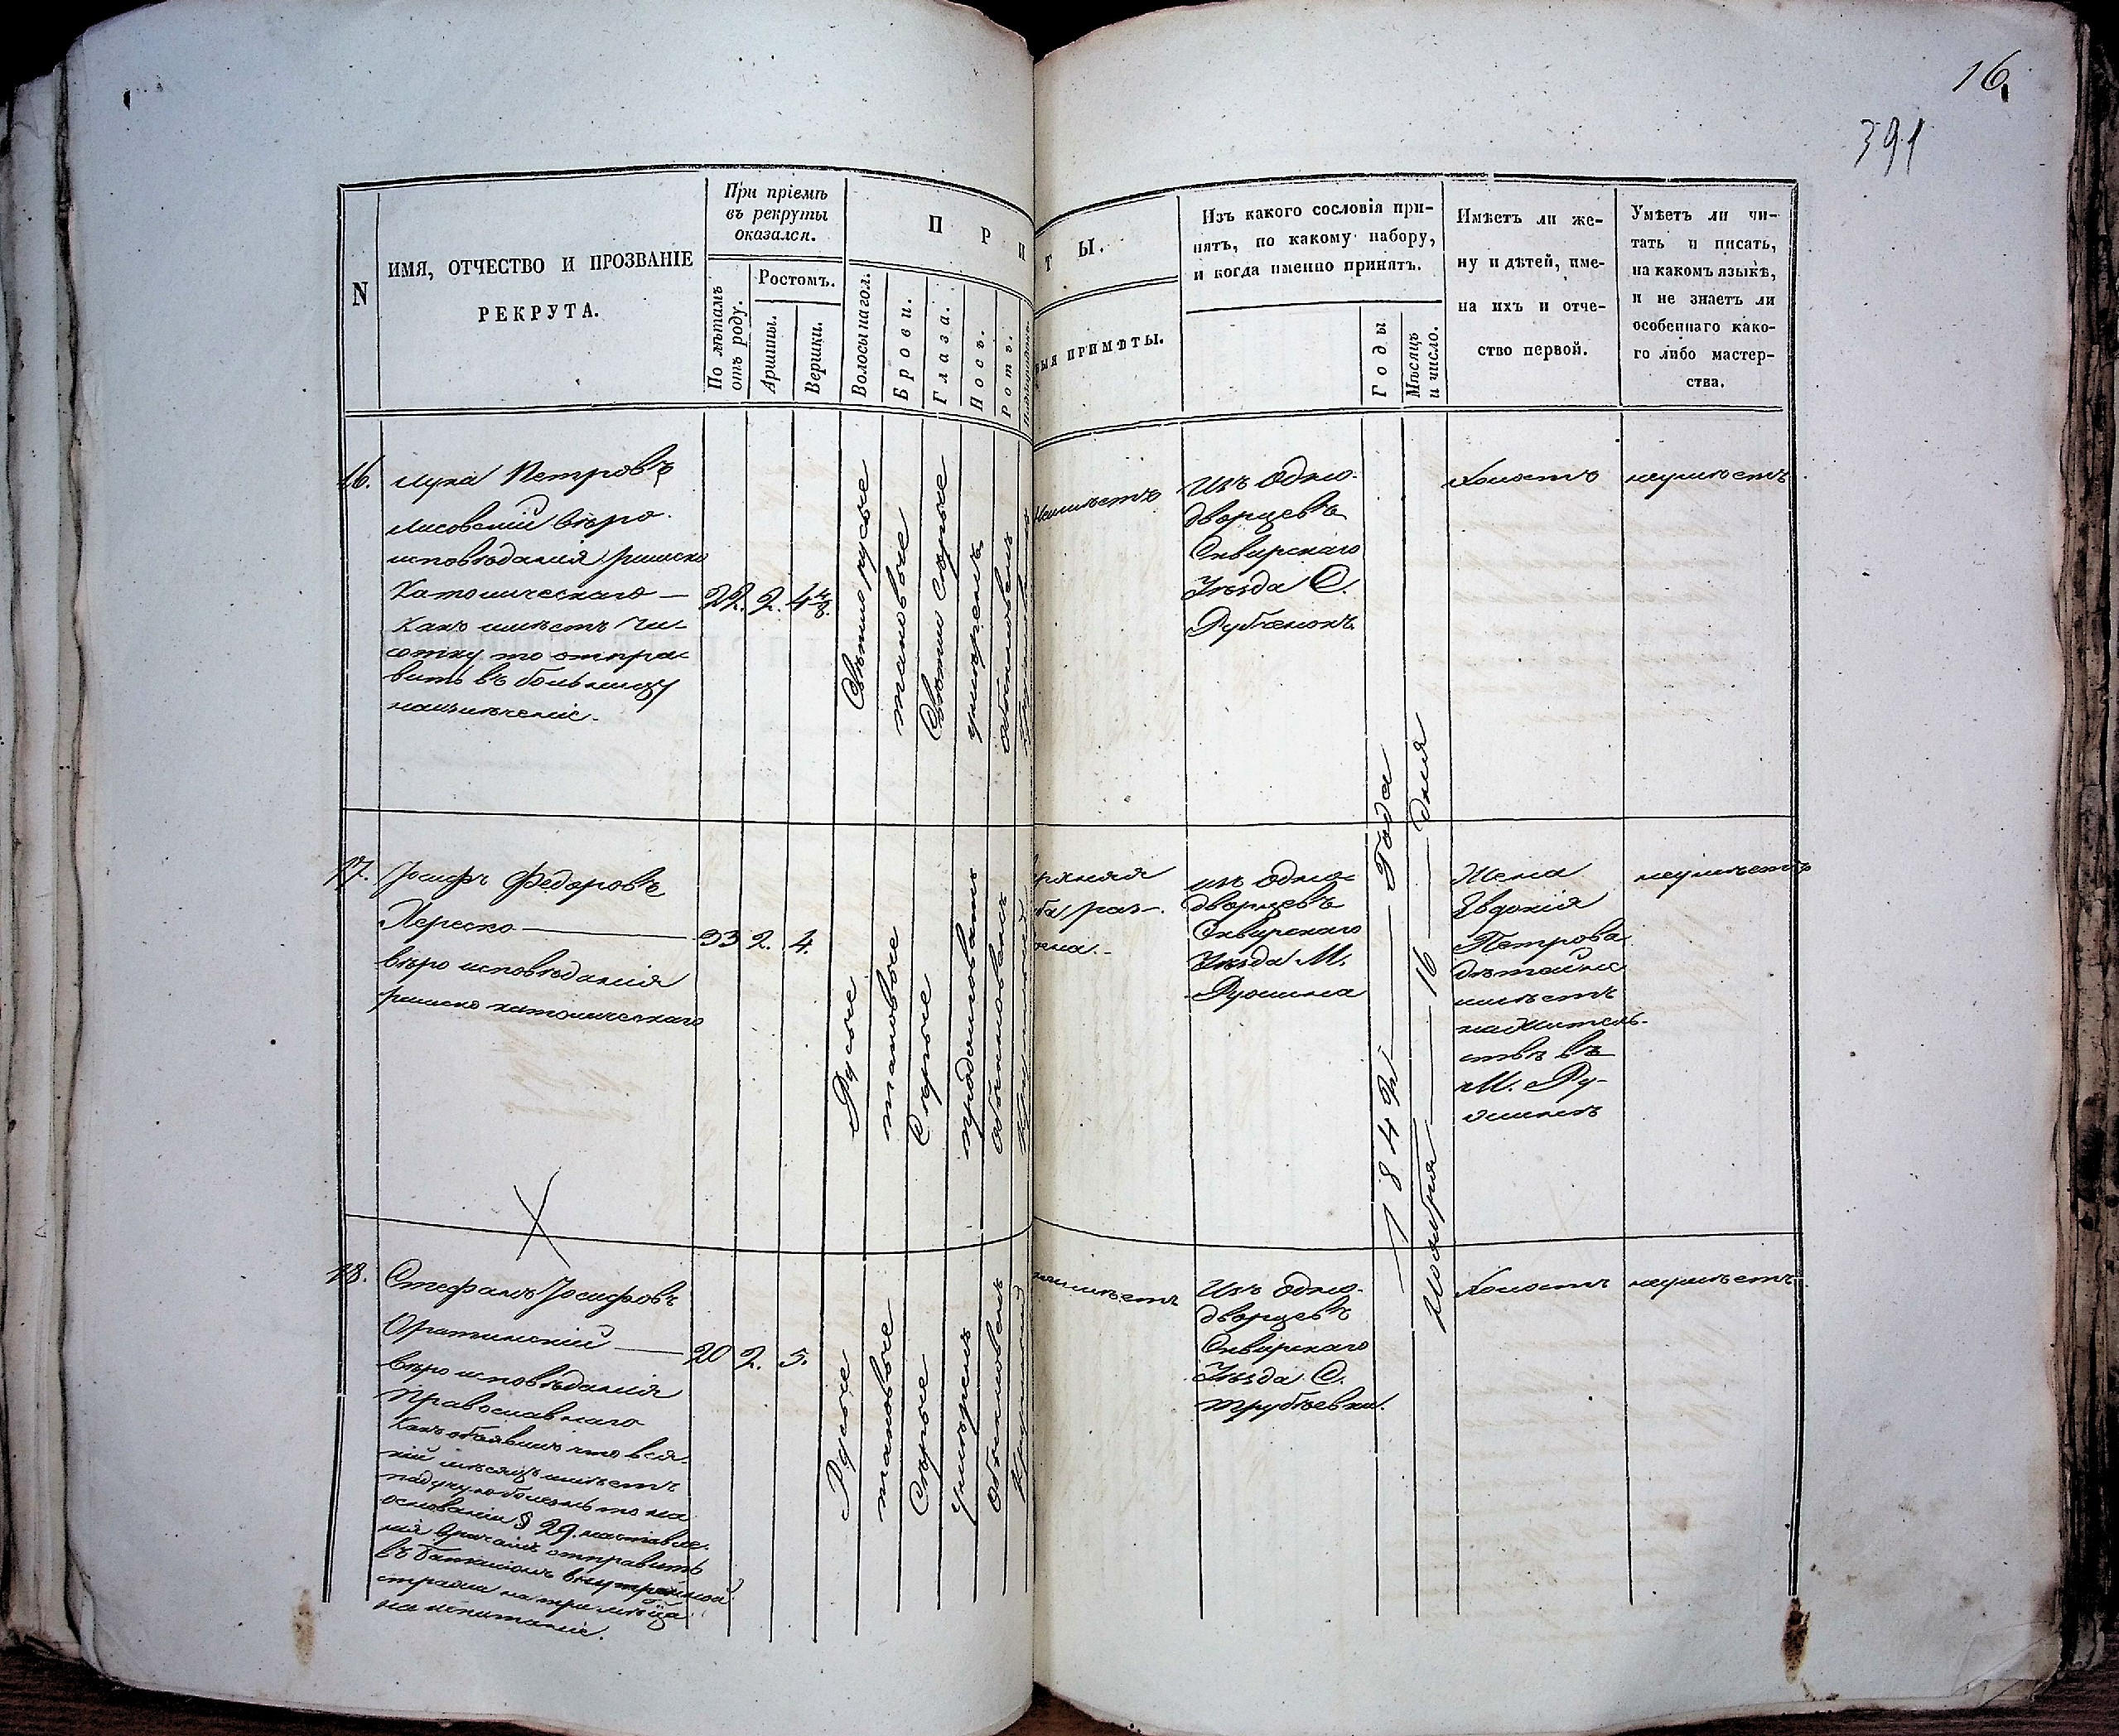 16.
391
N
ИМЯ, ОТЧЕСТВО И ПРОЗВАНІЕ
РЕКРУТА.
При пріемѣ
въ рекруты
оказался.
По лѣтамъ
отъ роду.
Ростомъ.
Аршины.
Вершки.
П Р И
Волосы на гол.
Брови.
Глаза.
Носъ.
Ротъ.
Подбородокъ.
Т Ы.
ПРИМѢТЫ.
Изъ какого сословія при-
нятъ, по какому набору,
и когда именно принятъ.
Годы
Мѣсяцъ
и число.
Имѣетъ ли же-
ну и дѣтей, име-
на ихъ и отче-
ство первой.
Умѣетъ ли чи-
тать и писать,
на какомъ языкѣ,
и не знаетъ ли
особеннаго како-
го либо мастер-
ства.
16.
Лука Петровъ
Лисовскій вѣро-
исповѣданія римско
Католическаго —
Какъ имѣетъ чи-
сотку то отпра-
вить въ больницу
наизлеченіе.
22. 2. 4 4/8.
Свѣтлорусые
таковые
Свѣтло Серые
умѣренъ
обыкновенъ
Неимѣетъ
Изъ одно-
дворцевъ
Сквирскаго
Уѣзда С.
Рубченокъ
Холостъ
неумѣетъ
17.
Іосифъ Федоровъ
Переско —
вѣро исповѣданія
римско католическаго
33 2. 4.
Русые
таковые
Серые
продолговатъ
обыкновенъ
изъ одно-
дворцевъ
Сквирскаго
Уѣзда М.
Ружина
1842 — Года
Ноября — 16 — дня
Жена
Евдокія
Петрова
дѣтей не
имѣетъ
нажитель-
ствѣ въ
М. Ру-
жинѣ
неумѣетъ
18.
Стефанъ Іосифовъ
Оратинскій —
вѣро исповѣданія
Православнаго
Какъ объявилъ что вся-
кій мѣсяцъ имѣетъ
падучую болезнь то на
основаніи § 29. наставле-
нія врачамъ отправить
въ баталіонъ внутренней
стражи на три мѣсяца
на испытаніе.
20 2. 5.
Русые
таковые
Серые
умѣренъ
Обыкновенъ
Круглый
неимѣетъ
Изъ одно-
дворцевъ
Сквирскаго
Уѣзда С.
Трубѣевки.
Холостъ
неумѣетъ